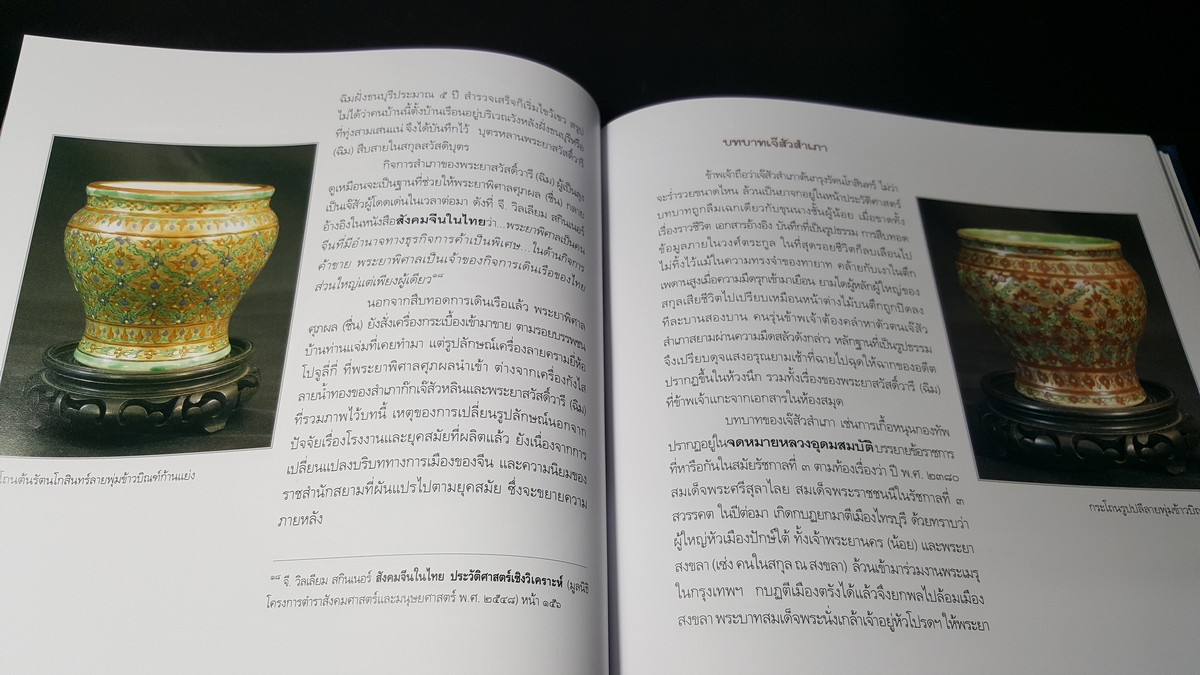 ฉิมฝั่งธนบุรีประมาณ ๕ ปี สำรวจเสร็จก็เริ่มไขว้เขว สรุป
ไม่ได้ว่าคนบ้านนี้ตั้งบ้านเรือนอยู่บริเวณวังหลังฝั่งธนบุรีหรือ
ที่ทุ่งสามเสนแน่ จึงได้บันทึกไว้ บุตรหลานพระยาสวัสดิ์วารี
(ฉิม) สืบสายในสกุลสวัสดิบุตร
กิจการสำเภาของพระยาสวัสดิ์วารี (ฉิม) ผู้เป็นลุง
ดูเหมือนจะเป็นฐานที่ช่วยให้พระยาพิศาลศุภผล (ชื่น) กลาย
เป็นเจ้สัวผู้โดดเด่นในเวลาต่อมา ดังที่ จี. วิลเลียม สกินเนอร์
อ้างอิงในหนังสือสังคมจีนในไทยว่า...พระยาพิศาลเป็นคน
จีนที่มีอำนาจทางธุรกิจการค้าเป็นพิเศษ...ในด้านกิจการ
ค้าขาย พระยาพิศาลเป็นเจ้าของกิจการเดินเรือของไทย
ส่วนใหญ่แต่เพียงผู้เดียว๑๘
นอกจากสืบทอดการเดินเรือแล้ว พระยาพิศาล
ศุภผล (ชื่น) ยังสั่งเครื่องกระเบื้องเข้ามาขาย ตามรอยบรรพชน
บ้านท่านแจ่มที่เคยทำมา แต่รูปลักษณ์เครื่องลายครามยี่ห้อ
โปจูลีกี่ ที่พระยาพิศาลศุภผลนำเข้า ต่างจากเครื่องกังไส
ลายน้ำทองของสำเภาก๊กเจ้สัวหลินและพระยาสวัสดิ์วารี (ฉิม)
ที่รวมภาพไว้บทนี้ เหตุของการเปลี่ยนรูปลักษณ์นอกจาก
ปัจจัยเรื่องโรงงานและยุคสมัยที่ผลิตแล้ว ยังเนื่องจากการ
เปลี่ยนแปลงบริบททางการเมืองของจีน และความนิยมของ
ราชสำนักสยามที่ผันแปรไปตามยุคสมัย ซึ่งจะขยายความ
ภายหลัง
โถนต้นรัตนโกสินทร์ลายพุ่มข้าวบิณฑ์ก้านแย่ง
๑๘ จี. วิลเลียม สกินเนอร์ สังคมจีนในไทย ประวัติศาสตร์เชิงวิเคราะห์ (มูลนิธิ
โครงการตำราสังคมศาสตร์และมนุษยศาสตร์ พ.ศ. ๒๕๔๘) หน้า ๑๕๖
บทบาทเจ๊สัวสำเภา
ข้าพเจ้าถือว่าเจ๊สัวสำเภาต้นกรุงรัตนโกสินทร์ ไม่ว่า
จะร่ำรวยขนาดไหน ล้วนเป็นยาจกอยู่ในหน้าประวัติศาสตร์
บทบาทถูกลืมเฉกเดียวกับขุนนางชั้นผู้น้อย เมื่อขาดทั้ง
เรื่องราวชีวิต เอกสารอ้างอิง บันทึกที่เป็นรูปธรรม การสืบทอด
ข้อมูลภายในวงศ์ตระกูล ในที่สุดรอยชีวิตก็ลบเลือนไป
ไม่ทิ้งไว้แม้ในความทรงจำของทายาท คล้ายกับเงาในตึก
เพดานสูงเมื่อความมืดรุกเข้ามาเยือน ยามใดผู้หลักผู้ใหญ่ของ
สกุลเสียชีวิตไปเปรียบเหมือนหน้าต่างไม้บนตึกถูกปิดลง
ทีละบานสองบาน คนรุ่นข้าพเจ้าต้องคลำหาตัวตนเจ๊สัว
สำเภาสยามผ่านความมืดสลัวดังกล่าว หลักฐานที่เป็นรูปธรรม
จึงเปรียบดุจแสงอรุณยามเช้าที่ฉายไปฉุดให้ฉากของอดีต
ปรากฏขึ้นในห้วงนึก รวมทั้งเรื่องของพระยาสวัสดิ์วารี (ฉิม)
ที่ข้าพเจ้าแกะจากเอกสารในห้องสมุด
บทบาทของเจ๊สัวสำเภา เช่นการเกื้อหนุนกองทัพ
ปรากฏอยู่ในจดหมายหลวงอุดมสมบัติ บรรยายข้อราชการ
ที่หารือกันในสมัยรัชกาลที่ ๓ ตามท้องเรื่องว่า ปี พ.ศ. ๒๓๘๐
สมเด็จพระศรีสุลาไลย สมเด็จพระราชชนนีในรัชกาลที่ ๓
สวรรคต ในปีต่อมา เกิดกบฏยกมาตีเมืองไทรบุรี ด้วยทราบว่า
ผู้ใหญ่หัวเมืองปักษ์ใต้ ทั้งเจ้าพระยานคร (น้อย) และพระยา
สงขลา (เซ่ง คนในสกุล ณ สงขลา) ล้วนเข้ามาร่วมงานพระเมรุ
ในกรุงเทพฯ กบฏตีเมืองตรังได้แล้วจึงยกพลไปล้อมเมือง
สงขลา พระบาทสมเด็จพระนั่งเกล้าเจ้าอยู่หัวโปรดฯ ให้พระยา
กระโถนรูปปลีลายพุ่มข้าวบิณ